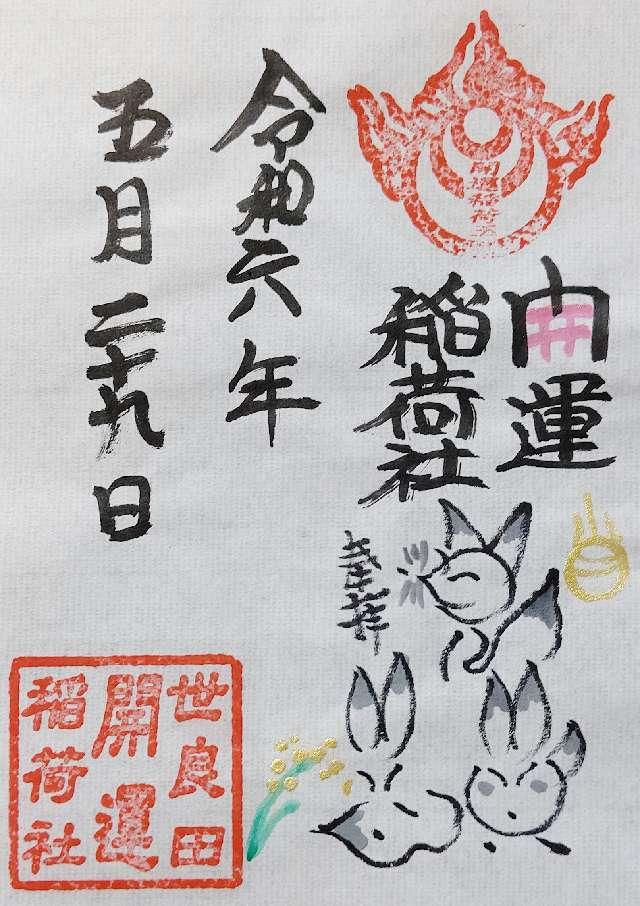 開運
稲荷社
奉拝
令和六年
五月二十九日
開運稲荷社
世良田
開運
稲荷社